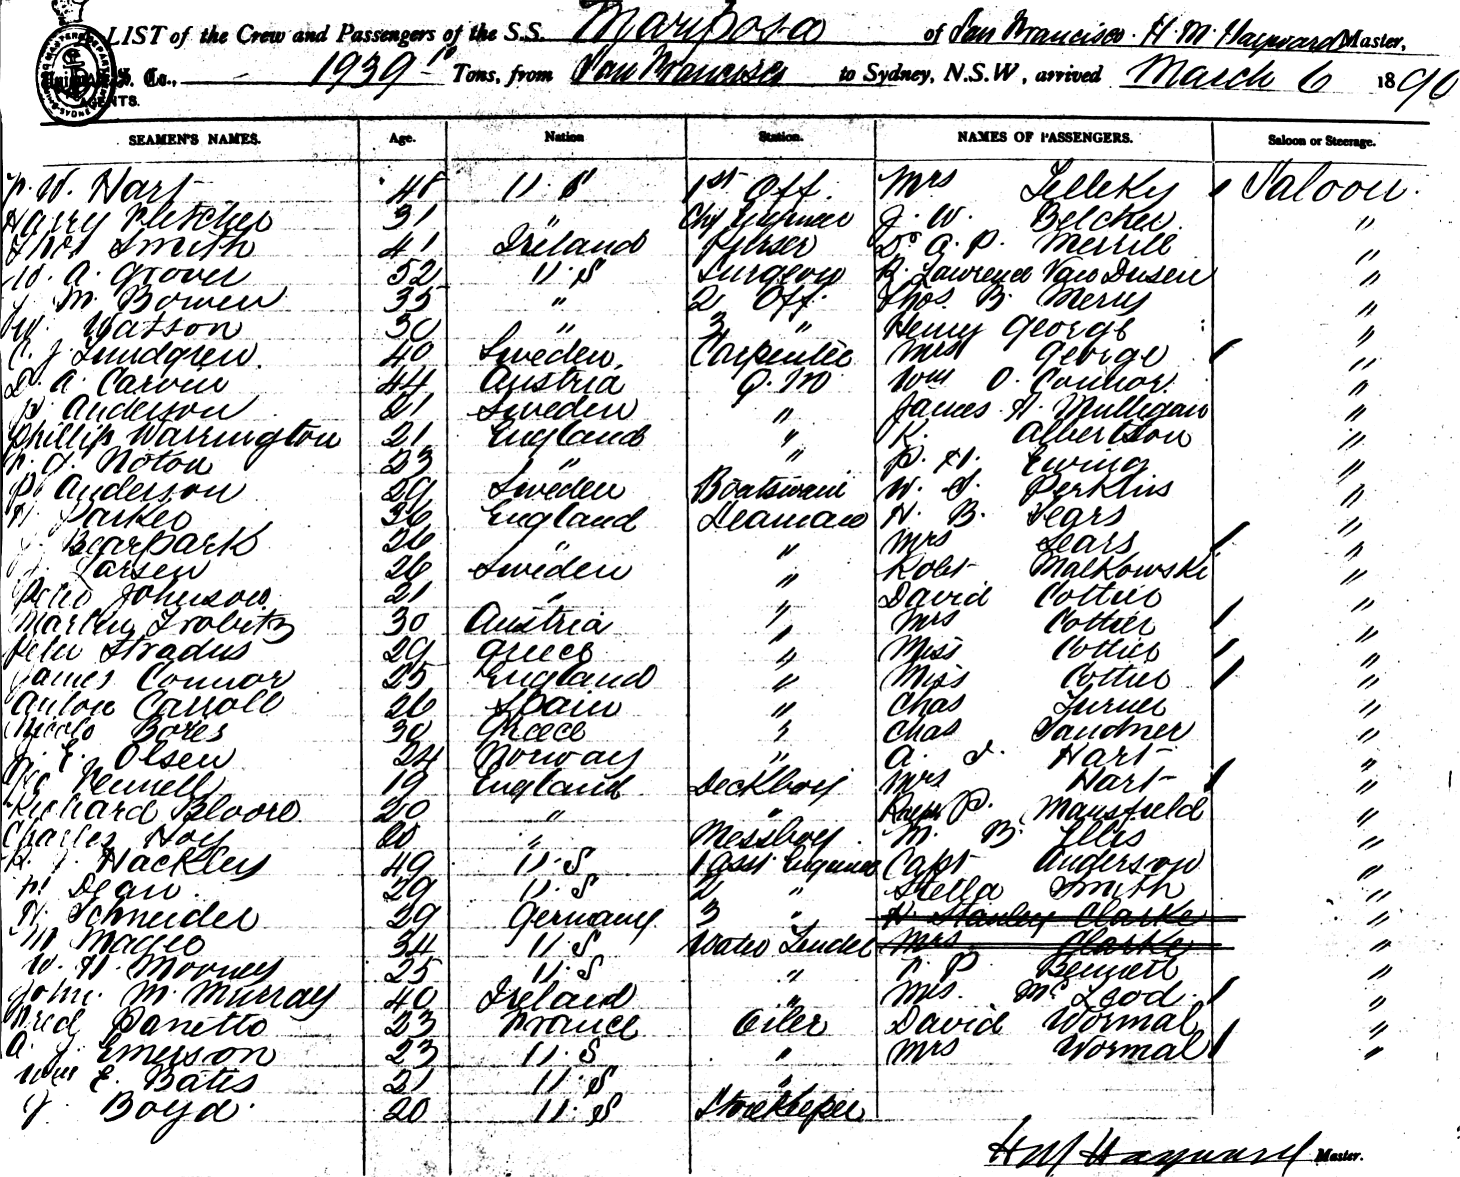 LIST of the Crew and Passengers of the S.S. Mariposa of San Francisco. H. M. Hayward Master,
S. Co., 1939 Tons, from San Francisco to Sydney, N.S.W, arrived March 6 1890
AGENTS.
SEAMEN'S NAMES. Age. Nation Station. NAMES OF PASSENGERS. Saloon or Steerage.
W. Hart 48 U. S 1st Off. Mrs Lelleky Saloon.
Harry Fletcher 31 " Chf Engineer J. W. Belcher "
Thos Smith 41 Ireland Purser Dr A. P. Merrill "
W. A. Grover 52 U. S Surgeon R. Lawrence Van Dusen "
M. Bowen 35 " 2 Off. Thos. B. Merry "
W. Watson 30 " 3 " Henry George "
C. J. Lundgren. 40 Sweden. Carpenter Mrs George "
D. A. Carvin 44 Austria Q. M Wm O. Connor. "
P. Anderson 21 Sweden " James H. Mulligan "
Phillip Warrington 21 England " K. Albertson "
Noton 23 " " P. H. Ewing "
P. Anderson 29 Sweden Boatswain W. S. Perkins "
H. Parker 36 England Seaman H. B. Sears "
J. Bearpark 26 " " Mrs Sears "
J. Larsen 26 Sweden " Robt Malkowski "
Peter Johnson. 21 " " David Cottier "
Martin 30 Austria " Mrs Cottier "
Peter Stradus 29 Greece " Miss Cottier "
James Connor 25 England " Miss Cottier "
Anton Carroll 26 Spain " Chas Turner "
Nicolo Bores 30 Greece " Chas Sandner "
E. Olsen 24 Norway " A. J. Hart "
Pennell 19 England Deckboy Mrs Hart "
Richard Bloore 20 " " P. Mansfield "
Charles Hoy 20 " Messboy. M. B. Ellis "
R. J. Hackley 49 U. S 1 Asst Engineer Capt Anderson "
Dean 29 U. S 2 " Stella Smith "
H. Schneider 29 Germany. 3 " H Stanley Clarke "
M Magee 34 U. S Water Tender Mrs Clarke "
W. H. Mooney 25 U. S " P. Bennett "
John. M. Murray 40 Ireland " Mrs. Mc Leod. "
Fred Panetto 23 France Oiler David Wormal "
A. J. Emerson 23 U. S " Mrs Wormal "
Wm E. Bates 21 U. S "
J. Boyd. 20 U. S Storekeeper
H M Hayward Master.